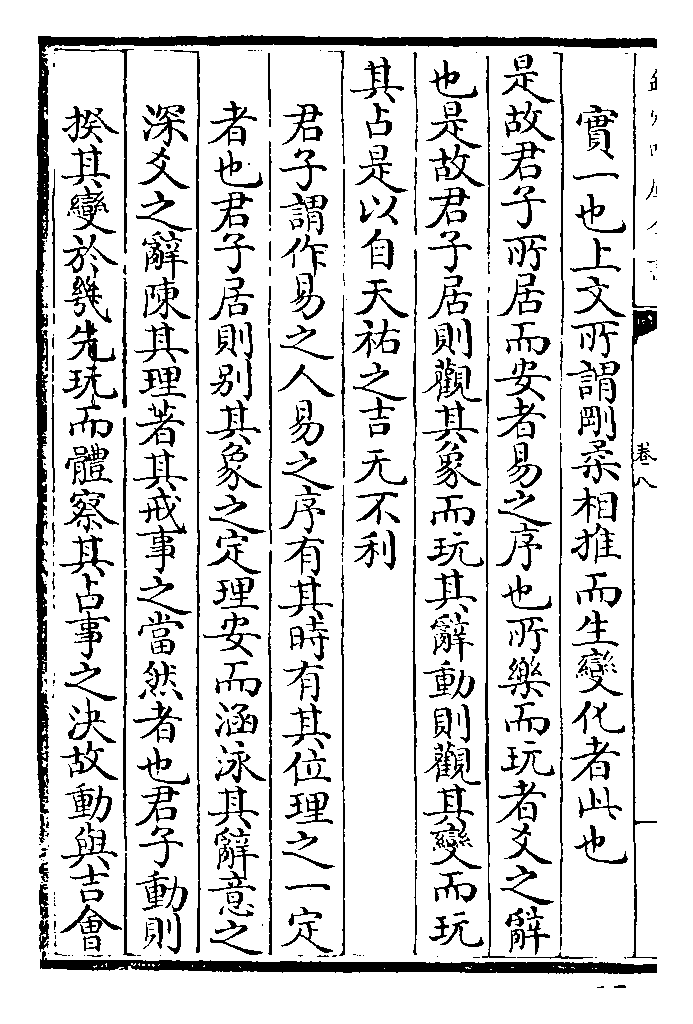 實一也上文所謂剛柔相推而生變化者此也
是故君子所居而安者易之序也所樂而玩者爻之辭
也是故君子居則觀其象而玩其辭動則觀其變而玩
其占是以自天祐之吉无不利
君子謂作易之人易之序有其時有其位理之一定
者也君子居則别其象之定理安而涵泳其辭意之
深爻之辭陳其理著其戒事之當然者也君子動則
揆其變於幾先玩而體察其占事之決故動與吉會
卷八